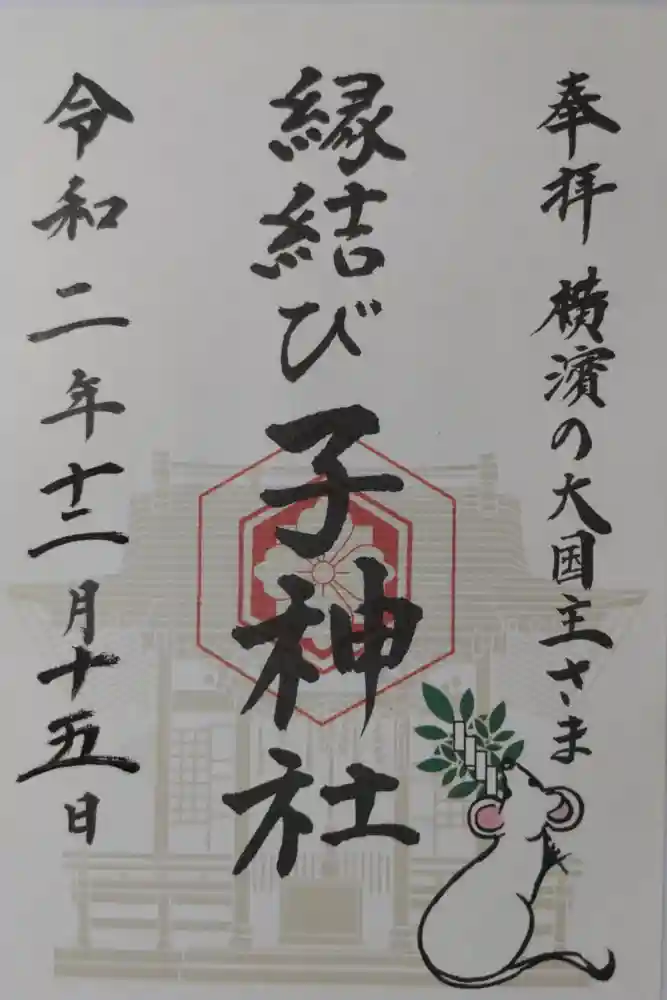 奉拝 横濱の大国主さま
縁結び子神社
令和二年十二月十五日